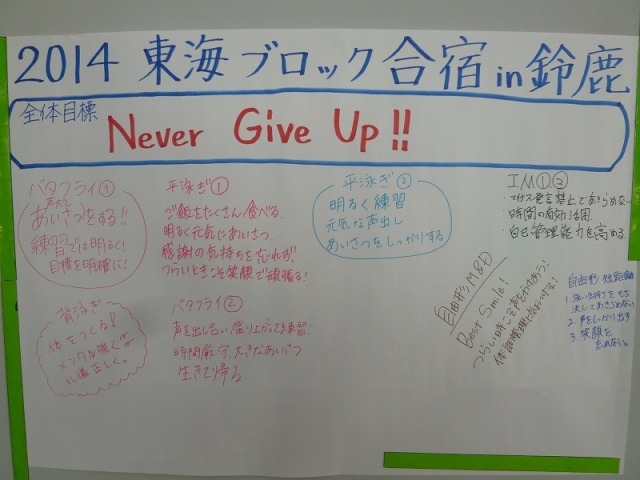 2014 東海ブロック合宿 in 鈴鹿
全体目標
Never Give Up!!
バタフライ①
声だし
あいさつをする!!
練習では明るく!
目標を明確に!
平泳ぎ①
ご飯をたくさん食べる。
明るく元気にあいさつ。
感謝の気持ちを忘れず!
つらいときこそ笑顔で頑張る!
平泳ぎ②
明るく練習
元気な声出し
あいさつをしっかりする
IM①②
・マイナス発言禁止であきらめない
・時間の有効活用。
・自己管理能力を高める。
背泳ぎ
体をつくる!
メンタル強く
礼儀正しく。
バタフライ②
声を出し合い、盛り上がって練習!
時間厳守、大きなあいさつ
生きて帰る
自由形 M&D
Best Smile!
つらい時こそ声をかけあう!
自由形 短距離
1. 強い気持ちをもち
決してあきらめない
2. 声をしっかり出す
3. 笑顔を
忘れない。